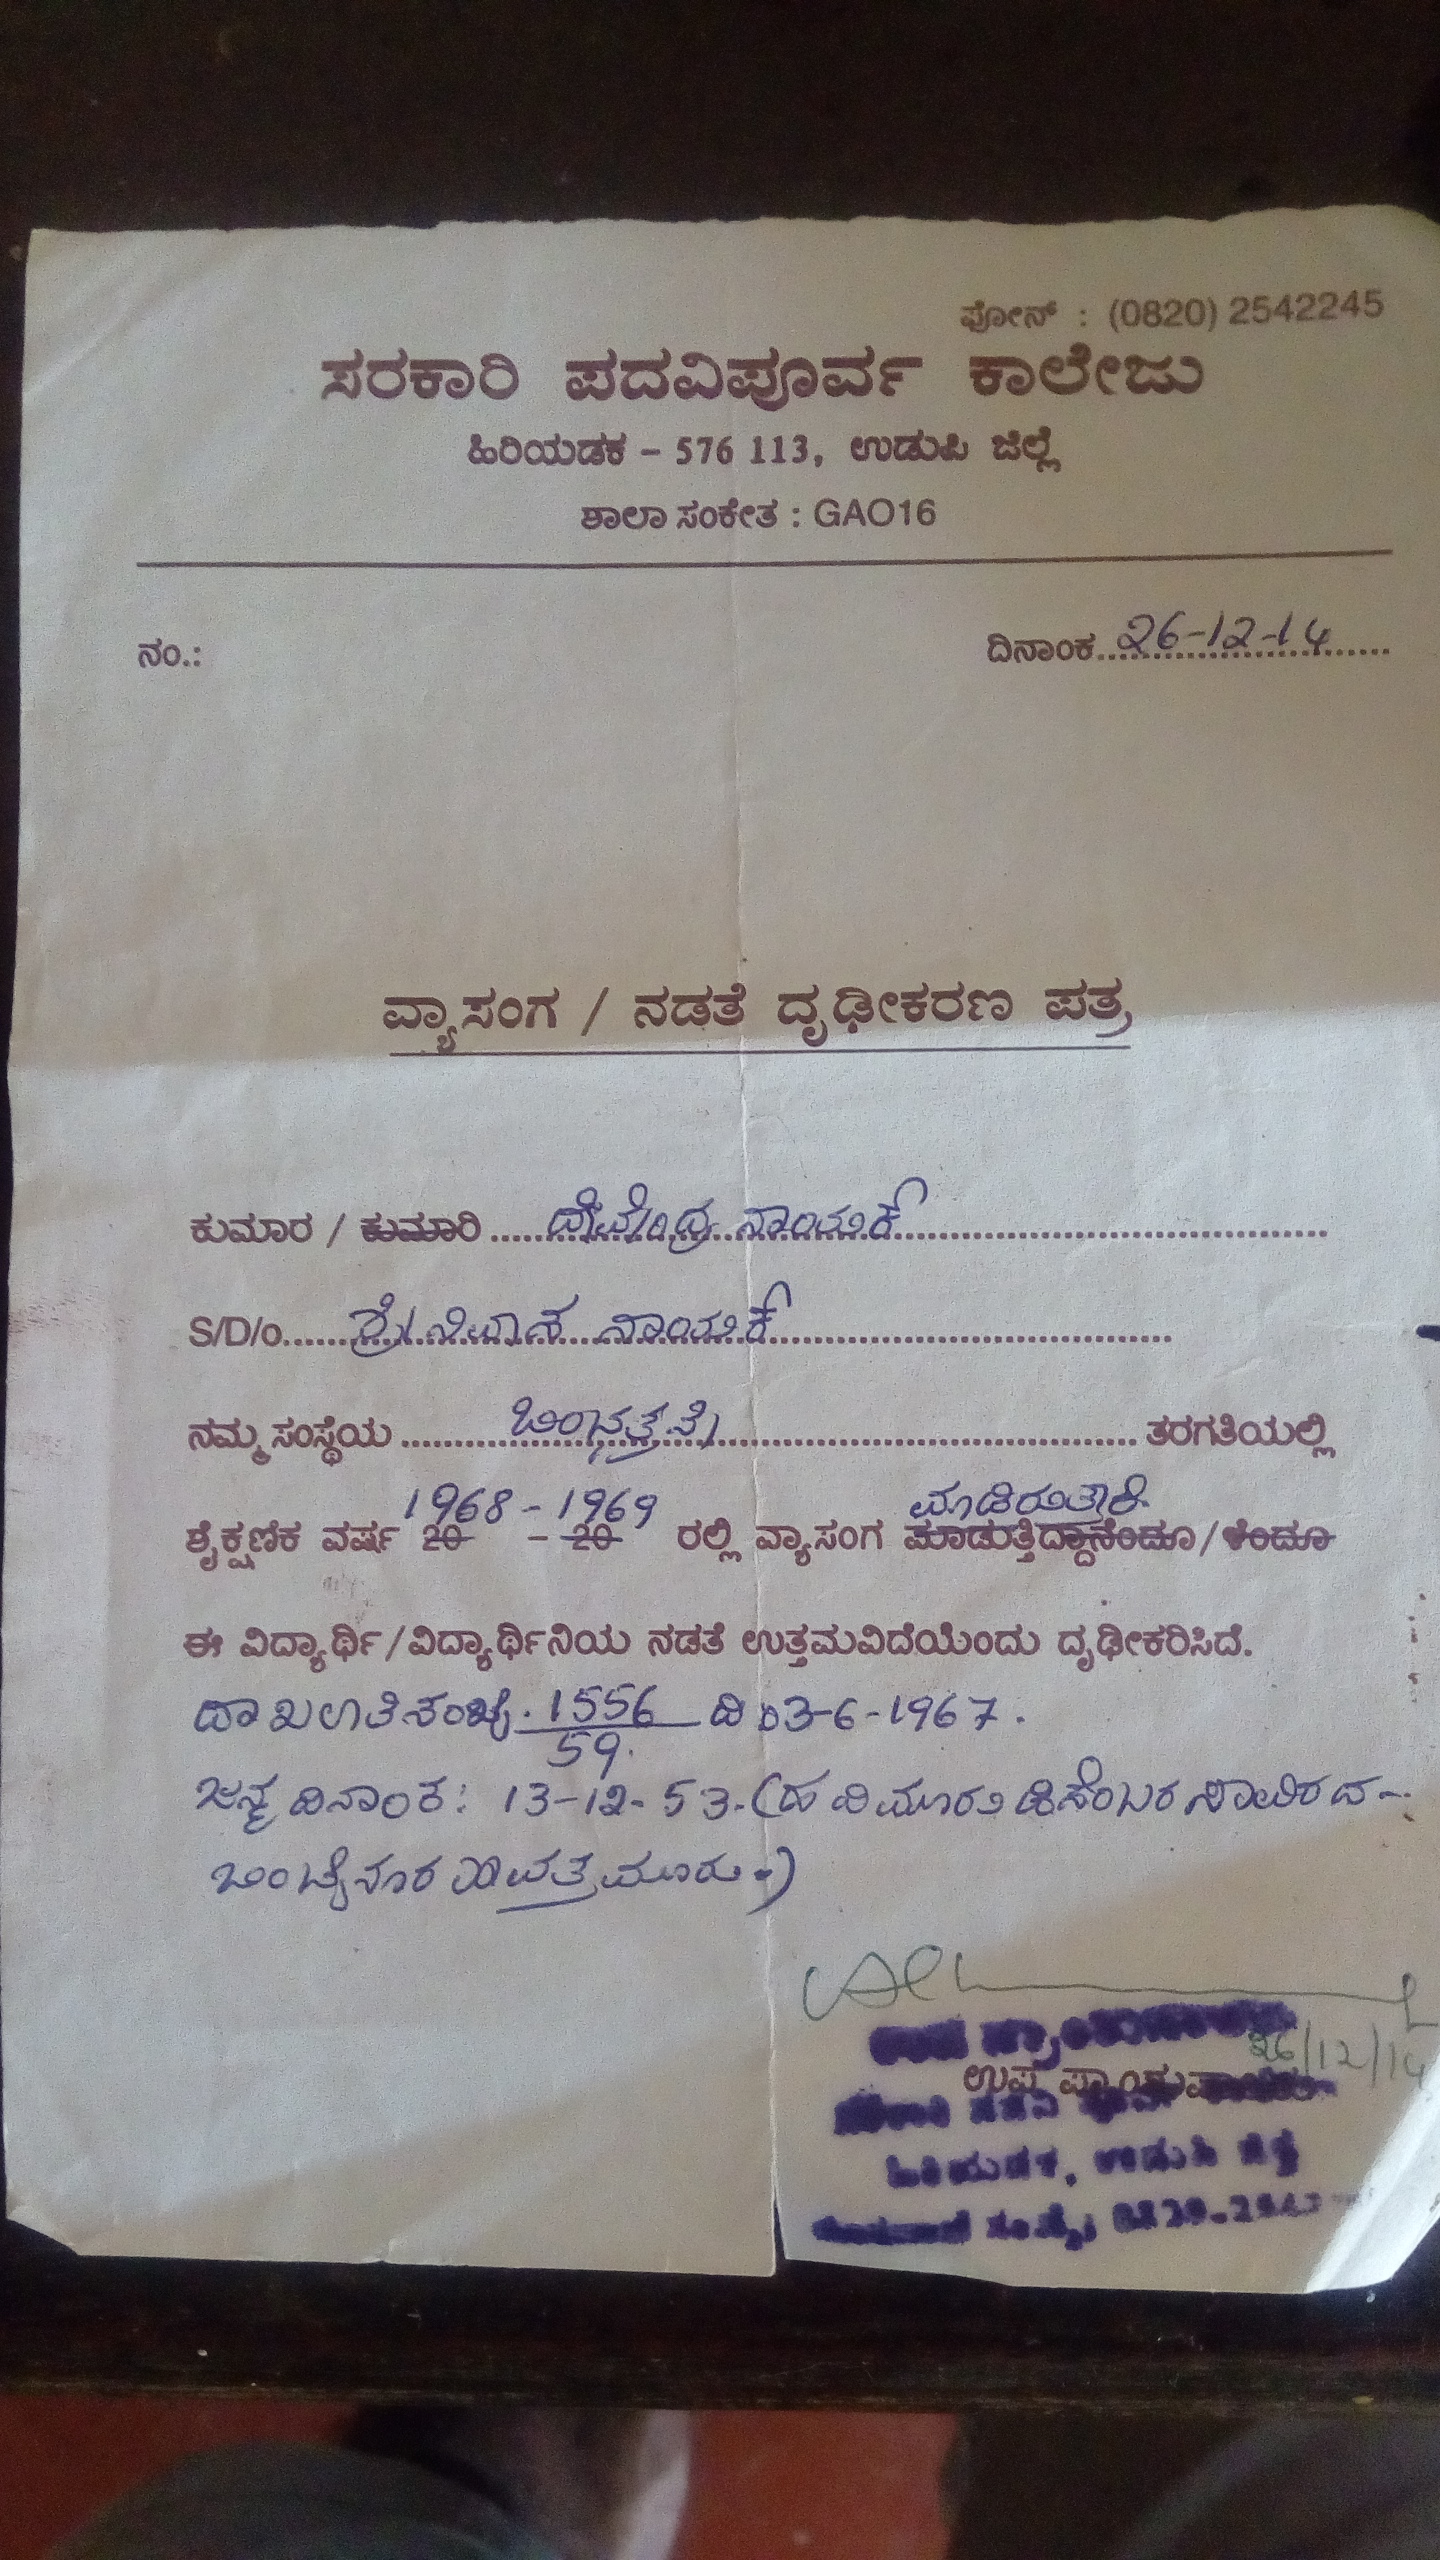 ಫೋನ್ : (0820) 2542245
ಸರಕಾರಿ ಪದವಿಪೂರ್ವ ಕಾಲೇಜು
ಹಿರಿಯಡಕ – 576 113, ಉಡುಪಿ ಜಿಲ್ಲೆ
ಶಾಲಾ ಸಂಕೇತ : GAO16
ನಂ.: ದಿನಾಂಕ 26-12-14
ವ್ಯಾಸಂಗ / ನಡತೆ ದೃಢೀಕರಣ ಪತ್ರ
ಕುಮಾರ / ಕುಮಾರಿ ದೇವೇಂದ್ರ ನಾಯಕ್
S/D/o ಶ್ರೀನಿವಾಸ ನಾಯಕ್
ನಮ್ಮ ಸಂಸ್ಥೆಯ ಒಂಭತ್ತನೇ ತರಗತಿಯಲ್ಲಿ
1968 - 1969 ಮಾಡಿರುತ್ತಾರೆ.
ಶೈಕ್ಷಣಿಕ ವರ್ಷ 20 – 20 ರಲ್ಲಿ ವ್ಯಾಸಂಗ ಮಾಡುತ್ತಿದ್ದಾನೆಂದೂ/ಳೆಂದೂ
ಈ ವಿದ್ಯಾರ್ಥಿ/ವಿದ್ಯಾರ್ಥಿನಿಯ ನಡತೆ ಉತ್ತಮವಿದೆಯೆಂದು ದೃಢೀಕರಿಸಿದೆ.
ದಾಖಲಾತಿ ಸಂಖ್ಯೆ. 1556 ದಿ 03-6-1967.
59.
ಜನ್ಮ ದಿನಾಂಕ: 13-12-53. (ಹದಿಮೂರು ಡಿಸೆಂಬರ ಸಾವಿರದ-
ಒಂಬೈನೂರ ಐವತ್ತ ಮೂರು-)
26/12/14
ಉಪ ಪ್ರಾಂಶುಪಾಲರು
ಹಿರಿಯಡಕ, ಉಡುಪಿ ಜಿಲ್ಲೆ